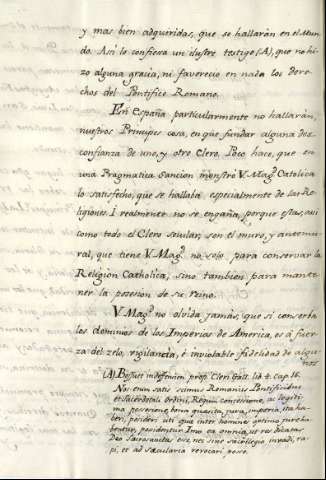 y mas bien adqueridas, que se hallarán en el Mun-
do. Asi lo confiesa un ilustre testigo (A), que no hi-
zo alguna gracia, ni favorecio en nada los dere-
chos del Pontifice Romano.
En España particularmente no hallarán,
nuestros Principes cosa, en que fundar alguna des-
confianza de uno, y otro Clero. Poco hace, que en
una Pragmatica Sancion monstrò V. Mag.d Catolica
lo satisfecho, que se hallaba especialmente de las Re-
ligiones. I realmente no se engaña, porque estas, asi
como todo el Clero secular, son el muro, y antemu-
ral, que tiene V. Mag.d no solo para conservar la
Religion Catholica, sino tambien para mante-
ner la posesion de su Reino.
V. Mag.d no olvida jamás, que si conserba
los dominios de los Imperios de America, es á fuer-
za del zelo, vigilancia, è inviolable fidelidad de algu-
nos
(A) Bosuet in deffension. prop. Cleri Gall. lib. Cap. 16.
Nos enim satis scimus Romanis Pontificibus
et Sacerdotali Ordini, Regum concessione, ac legiti-
ma possesione, bona quæsita, jura, imperia, ita ha-
beri, posideri uti quæ inter homines optimo jure ha-
bentur, posidentur. Imo ea omnia, ut res dicatas
Deo Sacrosanctas esse, nec sine sacrilegio invadi, ra-
pi, et ad sæcularia revocari posse.